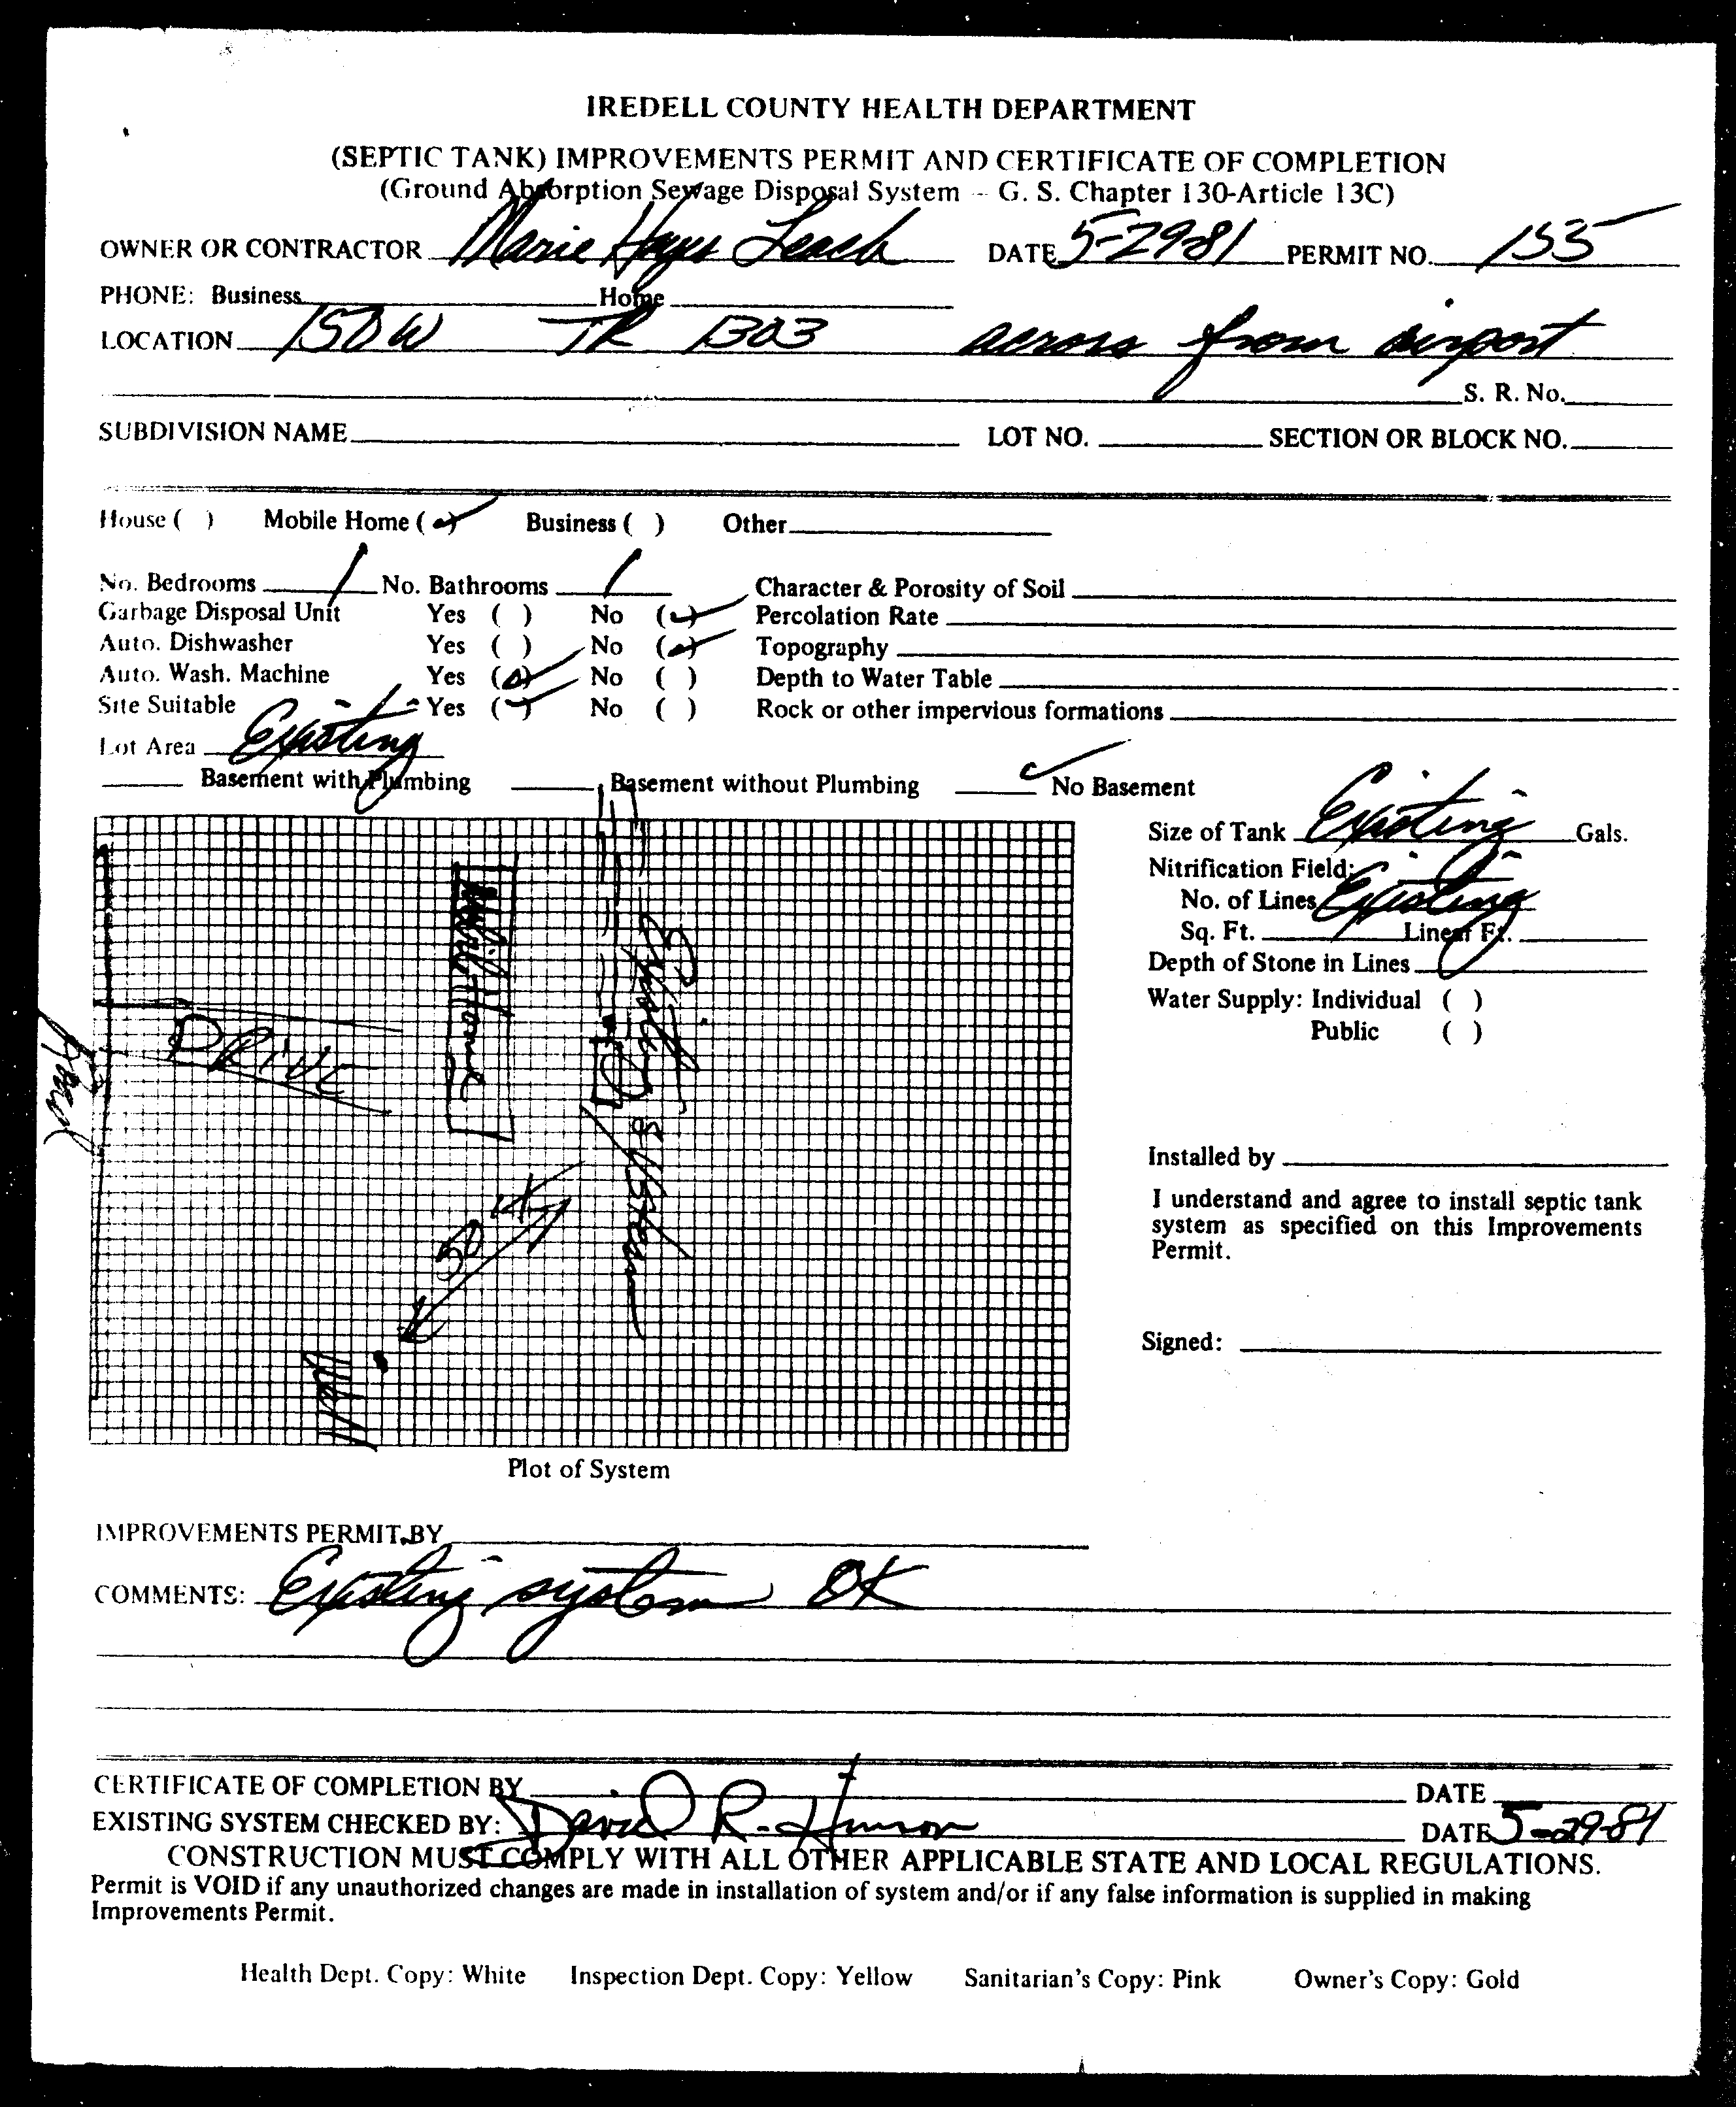 IREDELL COUNTY HEALTH DEPARTMENT
(SEPTIC TANK) IMPROVEMENTS PERMIT AND CERTIFICATE OF COMPLETION
(Ground Absorption Sewage Disposal System -- G. S. Chapter 130-Article 13C)
OWNER OR CONTRACTOR Marie Hays Leach DATE 5-29-81 PERMIT NO. 155
PHONE: Business Home
LOCATION 150 W TR 1303 across from airport
S. R. No.
SUBDIVISION NAME LOT NO. SECTION OR BLOCK NO.
House ( ) Mobile Home (✓) Business ( ) Other
No. Bedrooms 1 No. Bathrooms 1 Character & Porosity of Soil
Garbage Disposal Unit Yes ( ) No (✓) Percolation Rate
Auto. Dishwasher Yes ( ) No (✓) Topography
Auto. Wash. Machine Yes (✓) No ( ) Depth to Water Table
Site Suitable Yes (✓) No ( ) Rock or other impervious formations
Lot Area Existing
Basement with Plumbing Basement without Plumbing ✓ No Basement
Size of Tank Existing Gals.
Nitrification Field:
No. of Lines Existing
Sq. Ft. Linear Ft.
Depth of Stone in Lines
Water Supply: Individual ( )
Public ( )
Road
Drive
Mobile Home
Existing System
50 ft
Well
Installed by
I understand and agree to install septic tank
system as specified on this Improvements
Permit.
Signed:
Plot of System
IMPROVEMENTS PERMIT BY
COMMENTS: Existing system OK
CERTIFICATE OF COMPLETION BY DATE
EXISTING SYSTEM CHECKED BY: David R. Hinson DATE 5-29-81
CONSTRUCTION MUST COMPLY WITH ALL OTHER APPLICABLE STATE AND LOCAL REGULATIONS.
Permit is VOID if any unauthorized changes are made in installation of system and/or if any false information is supplied in making
Improvements Permit.
Health Dept. Copy: White Inspection Dept. Copy: Yellow Sanitarian's Copy: Pink Owner's Copy: Gold